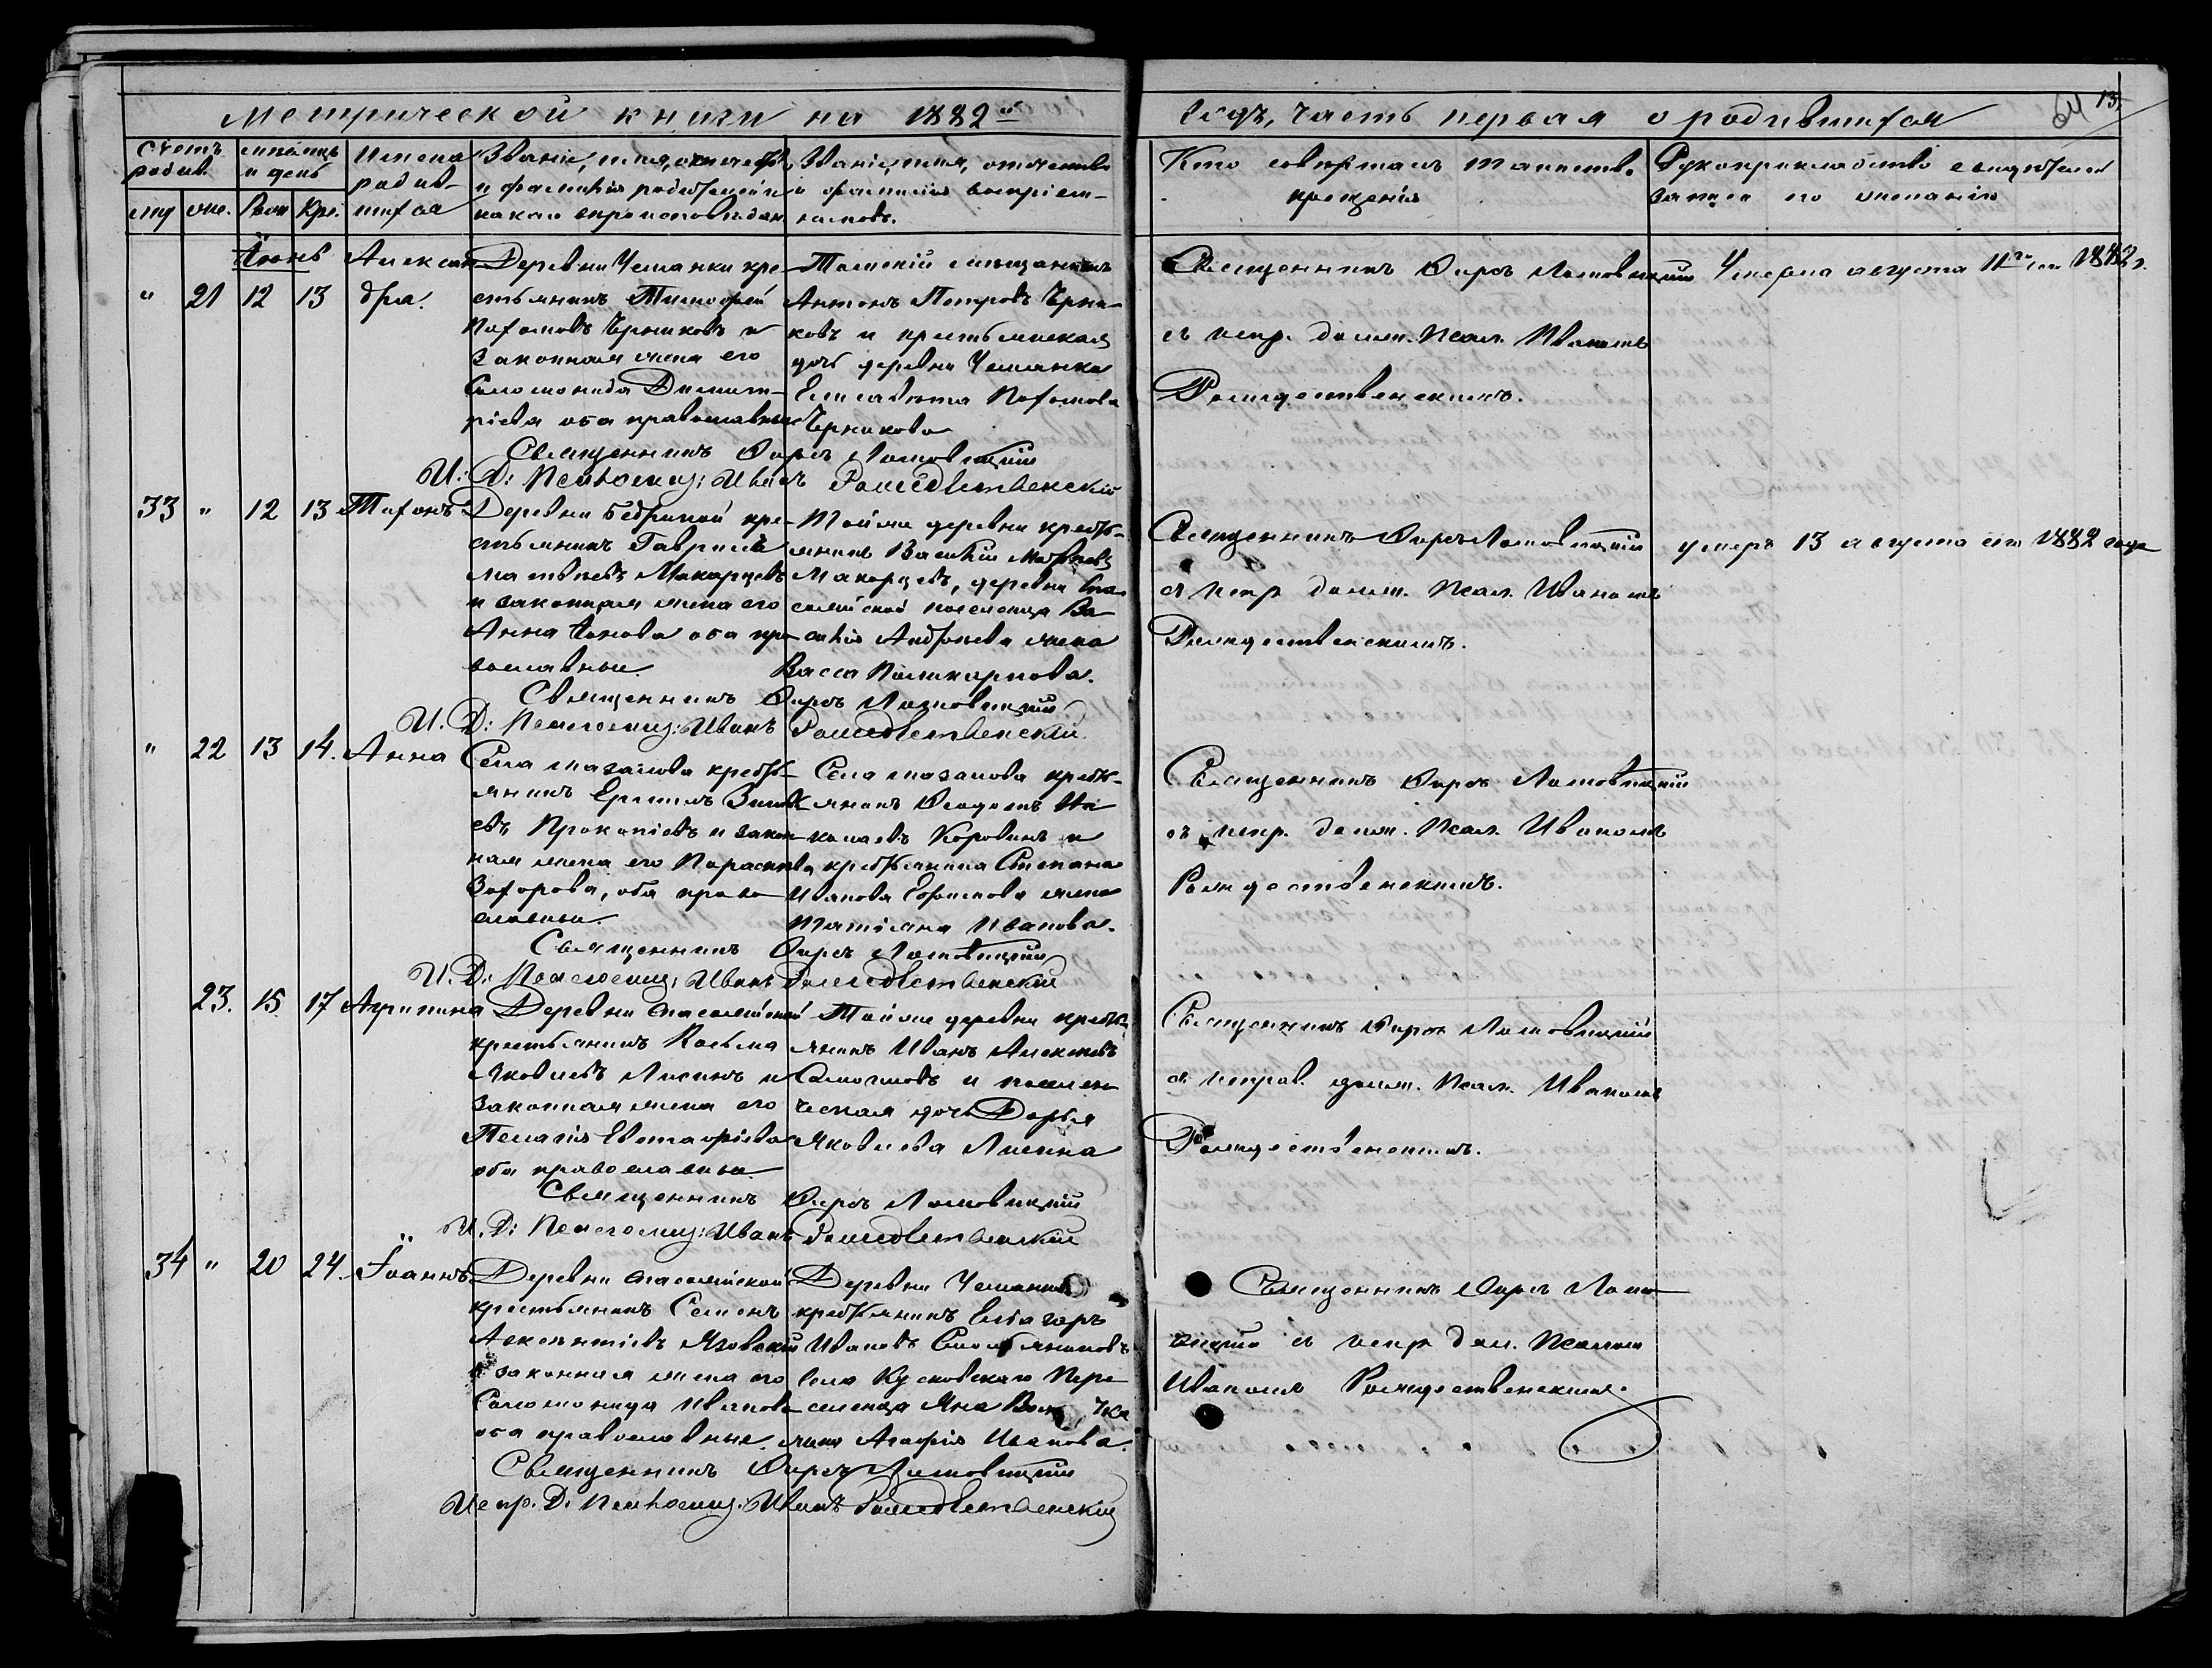 Метрической книги на 1882й
годъ, часть первая о родившихся
64 13
Счетъ родив.
мѣсяцъ и день
Имена родив-шихся
муж. жен. Рож. Кре.
Званіе, имя, отчество и фамилія родителей и какого вѣроисповѣданія
Званіе, имя, отчество и фамилія воспріем-никовъ.
Кто совершалъ таинство крещенія
Рукоприкладство свидѣтелей записи по желанію
Іюнь
" 21 12 13 Алексан-дра.
Деревни Чешанки кре-
стьянинъ Тимофей
Пахомовъ Черниковъ и
законная жена его
Соломонида Димит-
ріева оба православные
Томскій мѣщанинъ
Антонъ Петровъ Черни-
ковъ и крестьянская
дочь деревни Чешанки
Елисавета Пахомова
Черникова
Священникъ Киръ
съ испр. долж. Псал. Иваномъ
Рождественскимъ.
Умерла августа 11го сего 1882 г.
Священникъ Киръ
И. Д. Псаломщ. Иванъ Рождественскій
33 " 12 13 Тихонъ
Деревни кре-
стьянинъ Гавріилъ
Матвѣевъ Макарцевъ
и законная жена его
Анна Іонова оба пра-
вославные.
Той же деревни кресть-
янинъ Василій Матвѣевъ
Макарцевъ, деревни Спа-
поселенца Ва-
силія Андреева жена
Васса Поликарпова.
Священникъ Киръ
съ испр. долж. Псал. Иваномъ
Рождественскимъ.
умеръ 13 августа сего 1882 года
Священникъ Киръ
И. Д. Псаломщ. Иванъ Рождественскій
" 22 13 14. Анна
Села Мазалова кресть-
янинъ Ермилъ
Прокопьевъ и закон-
ная жена его Параскева
Захарова, оба право-
славные.
Села Мазалова кресть-
янинъ Ѳеодотъ Ни-
колаевъ Коровинъ и
крестьянина Степана
Иванова Ефимова жена
Татіана Иванова.
Священникъ Киръ
съ испр. долж. Псал. Иваномъ
Рождественскимъ.
Священникъ Киръ
И. Д. Псаломщ. Иванъ Рождественскій
23. 15 17 Агрипина
Деревни
крестьянинъ Косьма
Яковлевъ Лисинъ и
законная жена его
Пелагія Евстафіева
оба православные
Той же деревни кресть-
янинъ Иванъ Алексѣевъ
и поселен-
ческая дочь Дарья
Яковлева Лисина
Священникъ Киръ
съ исправ. долж. Псал. Иваномъ
Рождественскимъ.
Священникъ Киръ
И. Д. Псаломщ. Иванъ Рождественскій
34 " 20 24. Іоаннъ
Деревни
крестьянинъ Семенъ
Авксентіевъ
и законная жена его
Соломонида Иванова
оба православные.
Деревни Чешанки
крестьянинъ Елеазаръ
Ивановъ
села Кусковскаго Пере-
селенца Яна
жена Агафія Иванова.
Священникъ Киръ
съ испр. дол. Псалом.
Иваномъ Рождественскимъ.
Священникъ Киръ
Испр. Д. Псаломщ. Иванъ Рождественскій